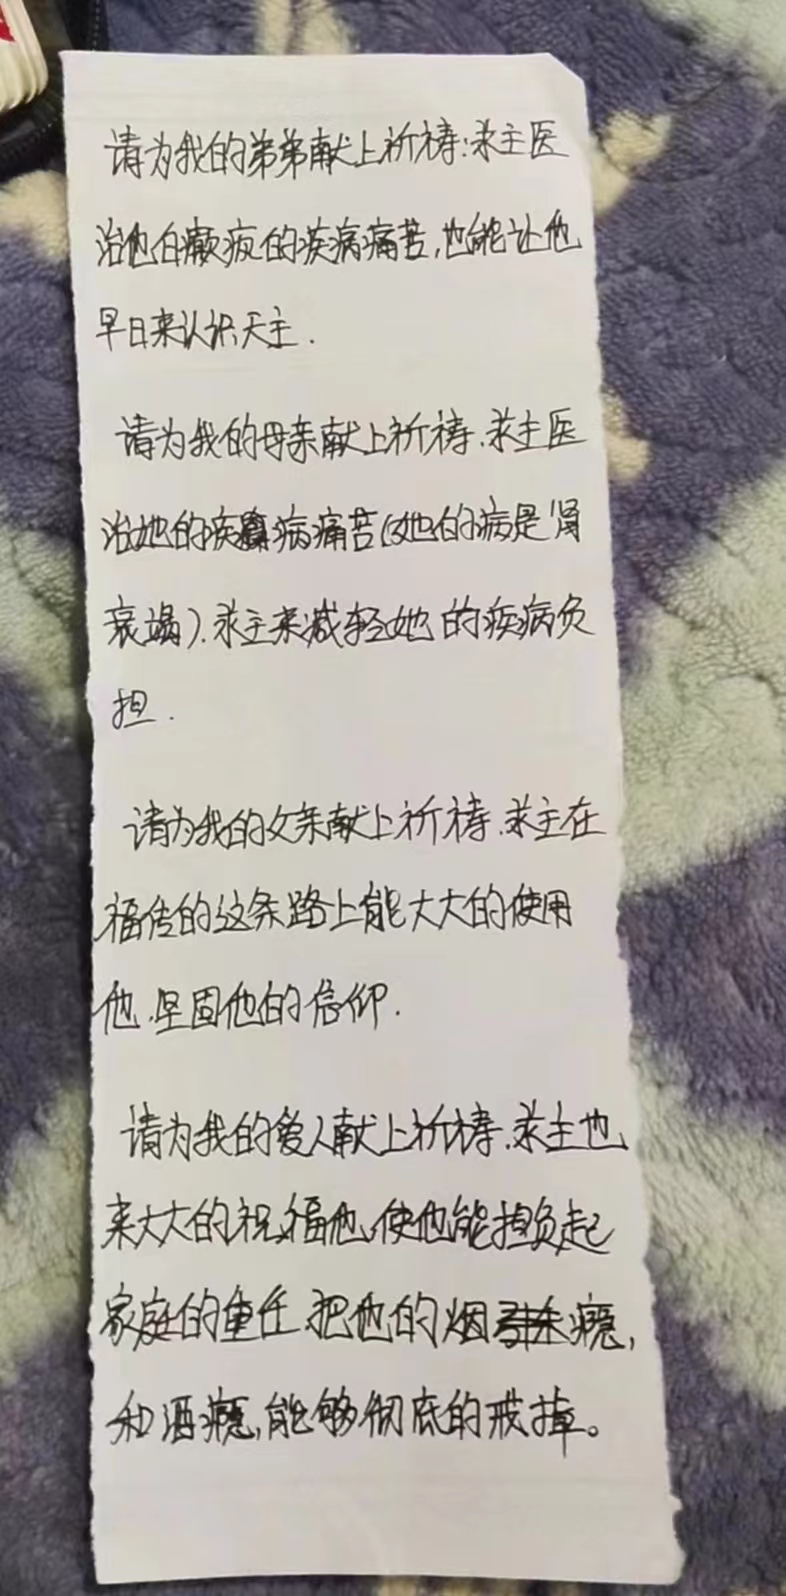 请为我的弟弟献上祈祷:求主医
治他白癜疯的疾病痛苦,也能让他
早日来认识天主.
请为我的母亲献上祈祷.求主医
治她的疾病痛苦(她的病是肾
衰竭).求主来减轻她的疾病负
担.
请为我的父亲献上祈祷.求主在
福传的这条路上能大大的使用
他.坚固他的信仰.
请为我的爱人献上祈祷.求主也
来大大的祝福他,使他能担负起
家庭的重任.把他的烟瘾,
和酒瘾,能够彻底的戒掉。